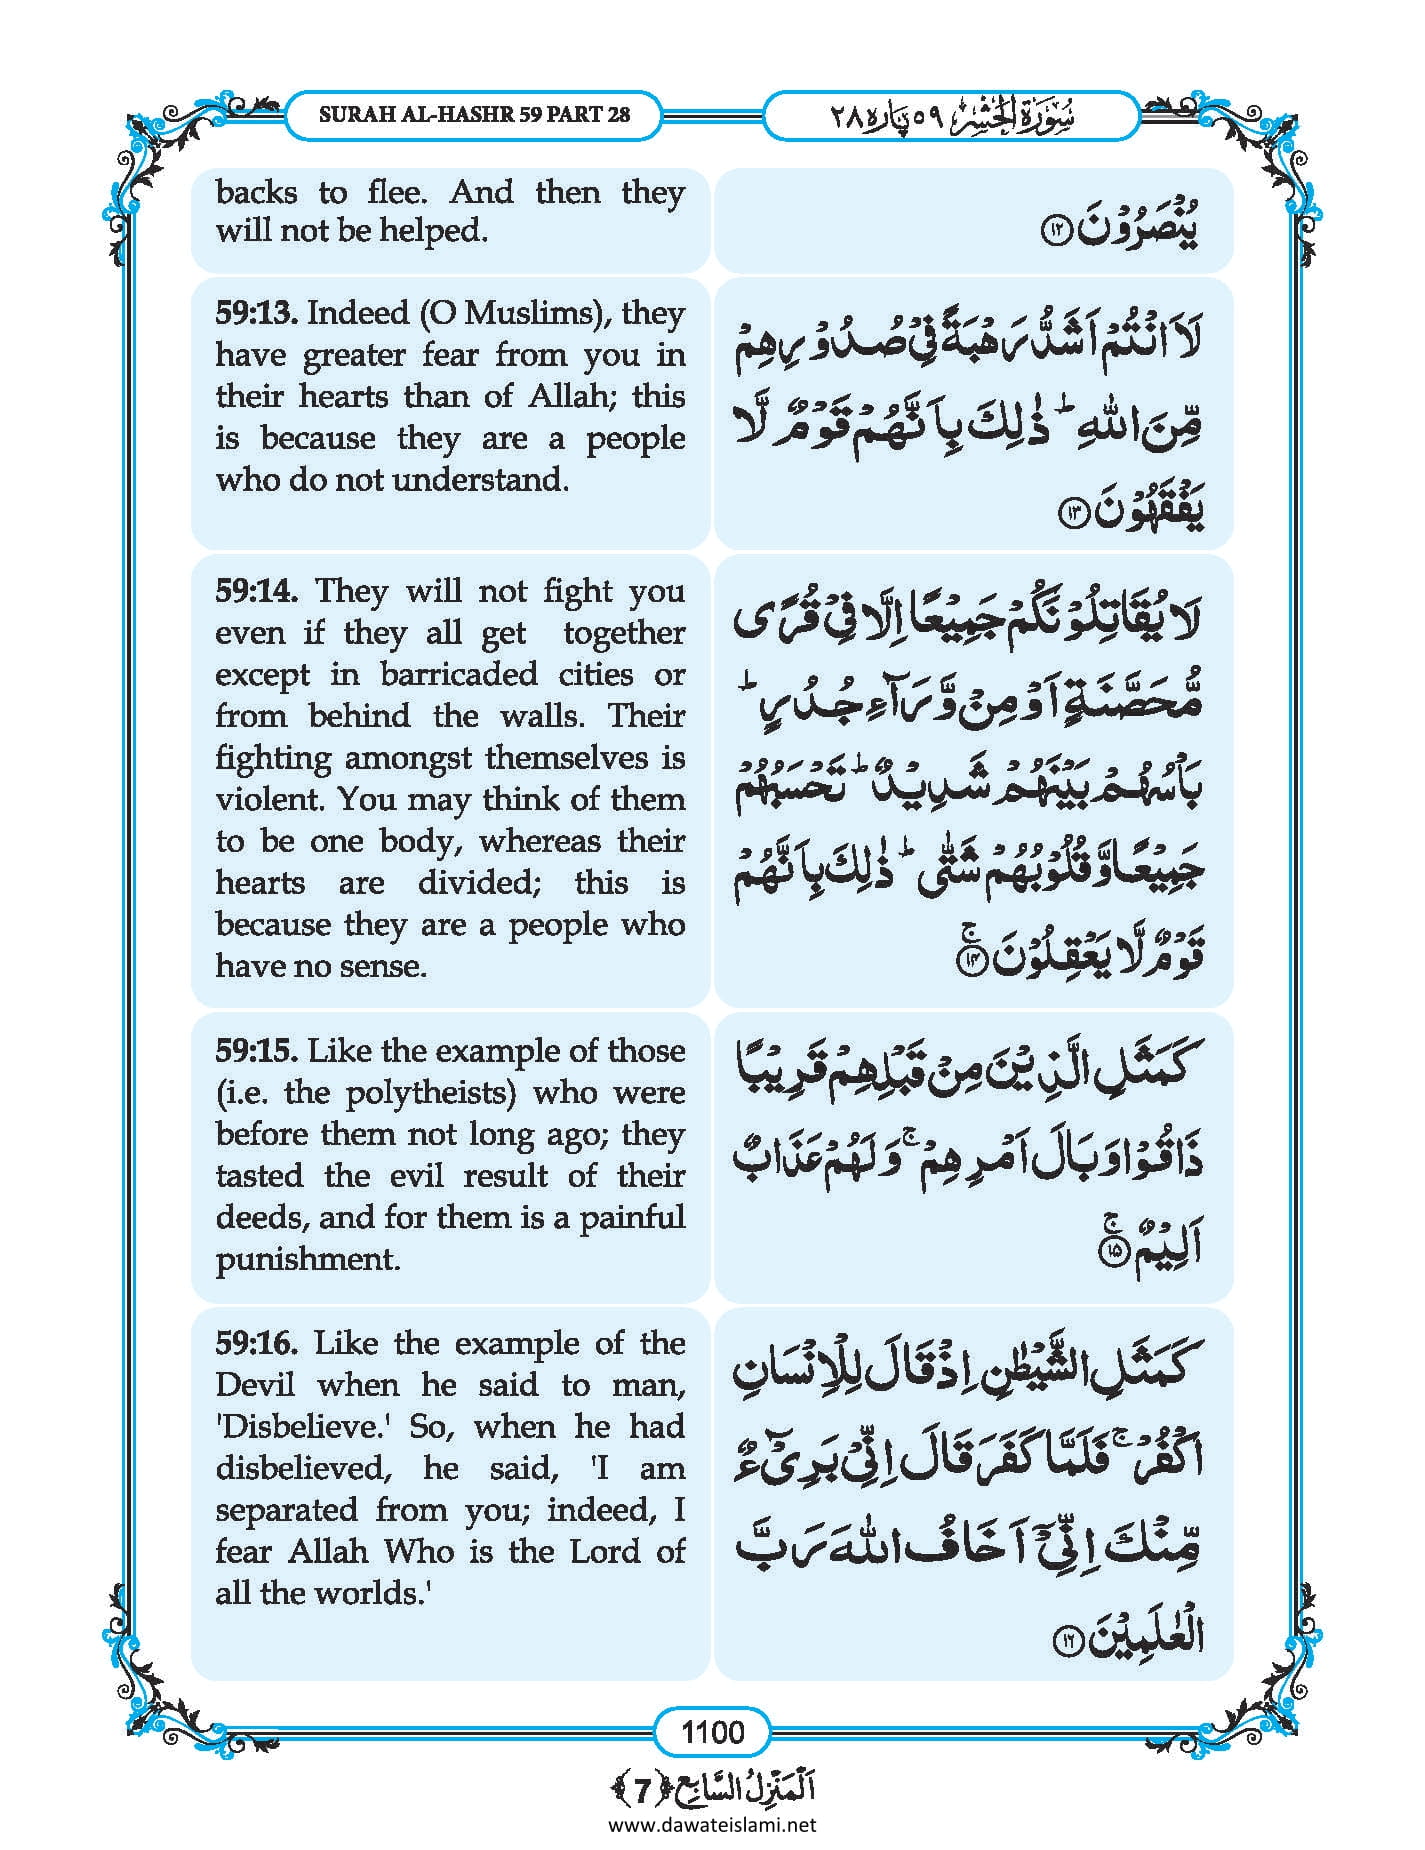 SURAH AL-HASHR 59 PART 28
سُوْرَةُ الْحَشْر ٥٩ پاره ٢٨
backs to flee. And then they
will not be helped.
یُنْصَرُوْنَ ﴿۱۲﴾
59:13. Indeed (O Muslims), they
have greater fear from you in
their hearts than of Allah; this
is because they are a people
who do not understand.
لَاَ انْتُمْ اَشَدُّ رَهْبَةً فِیْ صُدُوْرِهِمْ
مِّنَ اللّٰهِ ؕ ذٰلِكَ بِاَنَّهُمْ قَوْمٌ لَّا
یَفْقَهُوْنَ ﴿۱۳﴾
59:14. They will not fight you
even if they all get together
except in barricaded cities or
from behind the walls. Their
fighting amongst themselves is
violent. You may think of them
to be one body, whereas their
hearts are divided; this is
because they are a people who
have no sense.
لَا یُقَاتِلُوْنَكُمْ جَمِیْعًا اِلَّا فِیْ قُرًى
مُّحَصَّنَةٍ اَوْ مِنْ وَّرَآءِ جُدُرٍ ؕ
بَاْسُهُمْ بَیْنَهُمْ شَدِیْدٌ ؕ تَحْسَبُهُمْ
جَمِیْعًا وَّ قُلُوْبُهُمْ شَتّٰى ؕ ذٰلِكَ بِاَنَّهُمْ
قَوْمٌ لَّا یَعْقِلُوْنَ ۚ﴿۱۴﴾
59:15. Like the example of those
(i.e. the polytheists) who were
before them not long ago; they
tasted the evil result of their
deeds, and for them is a painful
punishment.
كَمَثَلِ الَّذِیْنَ مِنْ قَبْلِهِمْ قَرِیْبًا
ذَاقُوْا وَبَالَ اَمْرِهِمْ ۚ وَ لَهُمْ عَذَابٌ
اَلِیْمٌ ۚ﴿۱۵﴾
59:16. Like the example of the
Devil when he said to man,
'Disbelieve.' So, when he had
disbelieved, he said, 'I am
separated from you; indeed, I
fear Allah Who is the Lord of
all the worlds.'
كَمَثَلِ الشَّیْطٰنِ اِذْ قَالَ لِلْاِنْسَانِ
اكْفُرْ ۚ فَلَمَّا كَفَرَ قَالَ اِنِّیْ بَرِیْٓءٌ
مِّنْكَ اِنِّیْۤ اَخَافُ اللّٰهَ رَبَّ
الْعٰلَمِیْنَ ﴿۱۶﴾
1100
اَلْمَنْزِلُ السَّابِع ﴿7﴾
www.dawateislami.net